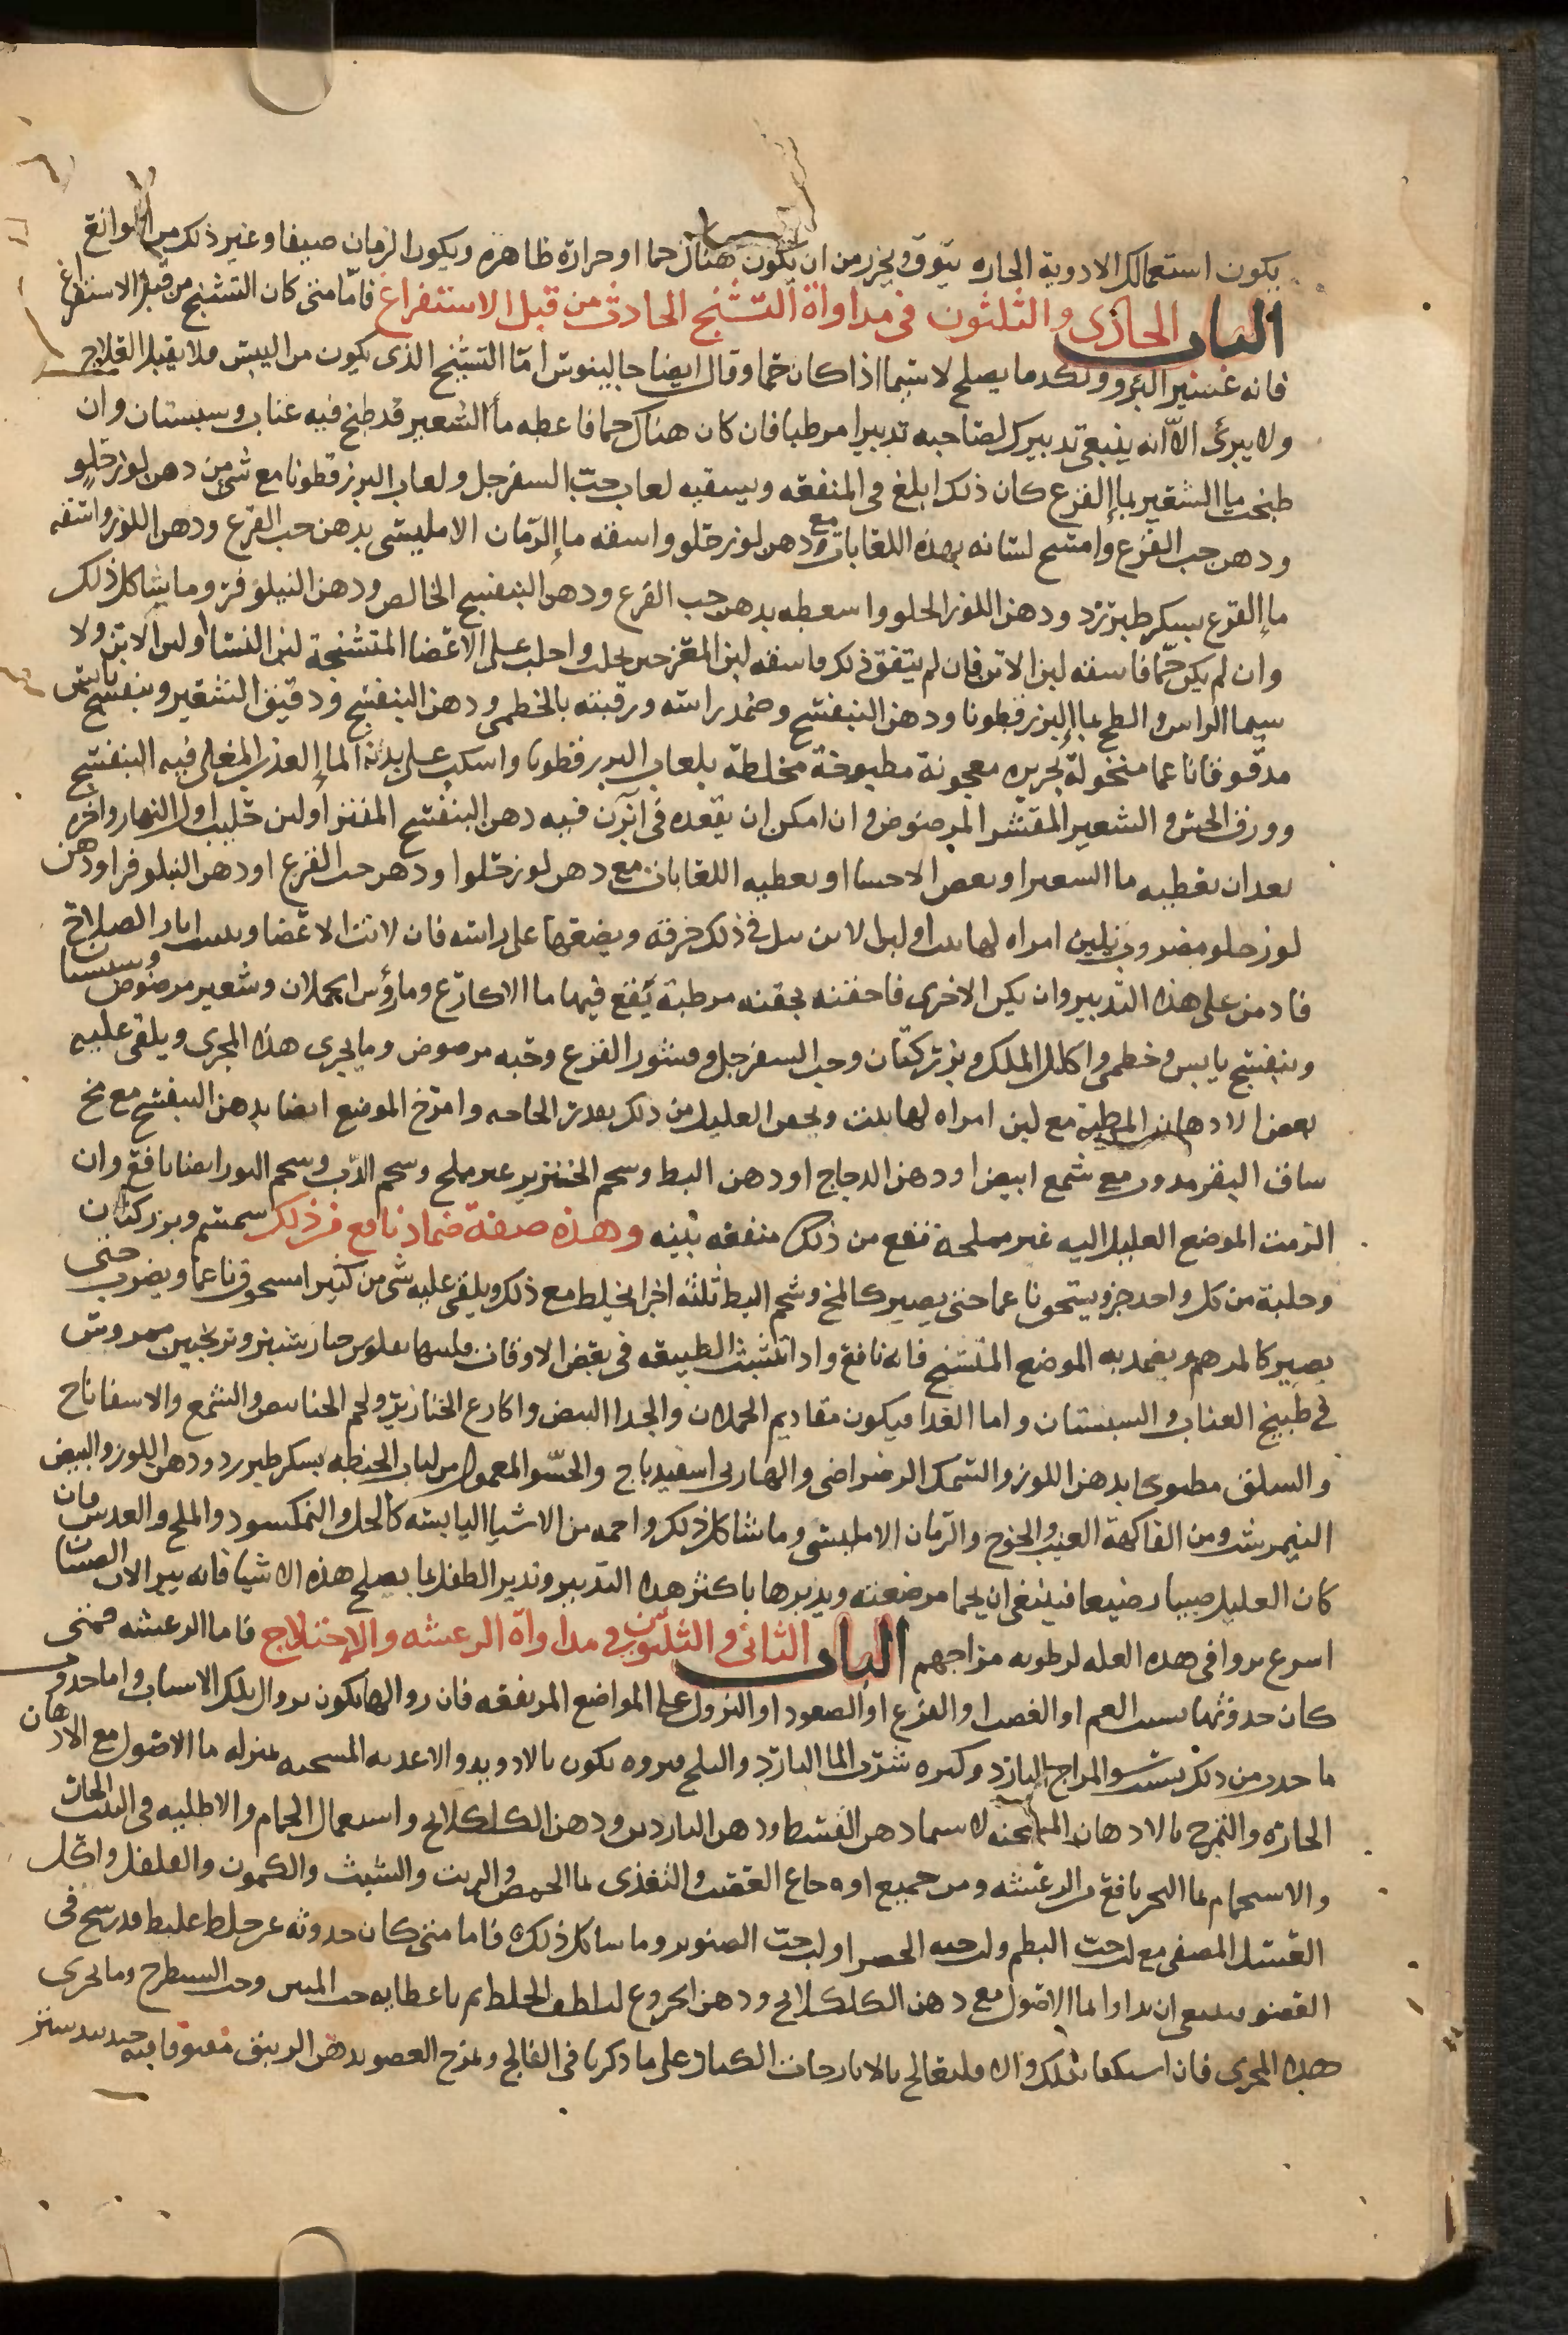 يكون استعمالك الادوية الحاره بتوق وتحرز من ان يكون هناك حما او حرارة ظاهرة ويكون الزمان صيفا وغير ذلك من الموانع
الباب الحادى والثلثون فى مداواة التشنج الحادث من قبل الاستفراغ فامّا متى كان التشنج من قبل الاستفراغ
فانه عسير البرو ونكد ما يصلح لا سيما اذا كان حما وقال ايضا جالينوس امّا التشنج الذى يكون من اليبس فلا يقبل العلاج
ولا يبرئ الا انه ينبغى تدبيرك لصاحبه تدبيرا مرطبا فان كان هناك حما فاعطه ما الشعير قد طبخ فيه عناب وسبستان وان
طبخت ما الشعير بما القرع كان ذلك ابلغ فى المنفعه ويسقيه لعاب حب السفرجل ولعاب البزرقطونا مع شى من دهن لوز حلو
ودهن حب القرع وامسح لسانه بهذه اللعابات مع دهن لوز حلو واسقه ما الرمان الامليسى بدهن حب القرع ودهن اللوز واسقه
ما القرع بسكر طبرزد ودهن اللوز الحلو واسعطه بدهن حب القرع ودهن البنفسج الخالص ودهن النيلوفر وما يشاكل ذلك
وان لم يكن حما فاسقه لبن الاتن فان لم يتفق ذلك فاسقه لبن المعز حين يحلب واحلب على الاعضا المتشنجة لبن النسا او لبن الاتن ولا
سيما الراس والطخ بما البزرقطونا ودهن البنفسج وضمد راسه ورقبته بالخطمى ودهن البنفسج ودقيق الشعير وبنفسج يابس
مدقوقا ناعما منخولة بحريره معجونة مطبوخة مخلطة بلعاب البزرقطونا واسكب على بدنه الما العذب المغلى فيه البنفسج
وورق الخس والشعير المقشر المرضوض وان امكن ان يقعده فى ابزن فيه دهن البنفسج المفتر او لبن حليب اول النهار واخره
بعد ان يعطيه ما الشعير او بعض الاحسا او يعطيه اللعابات مع دهن لوز حلوا ودهن حب القرع او دهن النيلوفر او دهن
لوز حلو مضروب بلبن امراه لها بنت او لبن الاتن يبل فى ذلك خرقه ويضعها على راسه فان لانت الاعضا وتبينت اثار الصلاح
فادمن على هذه التدبير وان يكن الاخرى فاحقنه بحقنه مرطبة يقع فيها ما الاكارع وما رؤس الحملان وشعير مرضوض وسبستان
وبنفسج يابس وخطمى واكليل الملك وبزر كتان وحب السفرجل وقشور القرع وحبه مرضوض وما يجرى هذا المجرى ويلقى عليه
بعض الادهان المرطبة مع لبن امراه لها بنت ويحقن العليل من ذلك بقدر الحاجه وامرخ الموضع ايضا بدهن البنفسج مع مخ
ساق البقر مدوب مع شمع ابيض او دهن الدجاج او دهن البط وشحم الخنزير غير مملح وشحم الدب وشحم الثور ايضا نافع وان
الزمت الموضع العليل اليه غير مملحه نفع من ذلك منفعه بينه وهذه صفة ضماد نافع من ذلك سمسم وبزر كتان
وحلبة من كل واحد جزو يسحق ناعما حتى يصير كالمخ وشحم البط ثلثه اجزا يخلط مع ذلك ويلقى عليه شى من كثيرا مسحوق ناعما ويضرب حتى
يصير كالمرهم ويضمد به الموضع المتشنج فانه نافع واذا اشتدت الطبيعه فى بعض الاوقات فلينها بفلوس خيار شنبر وترنجبين ممروس
فى طبيخ العناب والسبستان واما الغدا فيكون مقاديم الحملان والجدا البيض واكارع الخنازير ولحم الخنانيص والشمع والاسفاناخ
والسلق مطبوخا بدهن اللوز والسمك الرضراضى والهاربى اسفيدباج والحسو المعمول من لباب الحنطه بسكر طبرزد ودهن اللوز والبيض
النيمرشت ومن الفاكهة العنب والخوخ والرمان الامليسى وما شاكل ذلك واحمه من الاشيا اليابسه كالخل والنمكسود والملح والعدس فان
كان العليل صبيا رضيعا فينبغى ان يحما مرضعته ويدبرها باكثر هذا التدبير وتدبر الطفل بما يصلح هذه الاشيا فانه يبرا لان الصبيان
اسرع بروا فى هذه العله لرطوبه مزاجهم الباب الثانى والثلثون فى مداواة الرعشه والاختلاج فاما الرعشه فمتى
كان حدوثها بسبب الغم او الغضب او الفزع او الصعود او النزول على المواضع المرتفعه فان زوالها يكون بزوال تلك الاسباب واما حدوث
ما حدث من ذلك بسبب سو المزاج البارد وكثره شرب الما البارد والثلج فبروه يكون بالادويه والاغديه المسخنه بمنزله ما الاصول مع الادهان
الحارة والتمريخ بالادهان المسخنه لا سيما دهن القسط ودهن الناردين ودهن الكلكلانج واستعمال الحمام والاطليه فى البلد الحار
والاستحمام بما البحر نافع من الرعشه ومن جميع اوجاع العصب والتغذى بما الحمص والزيت والشبث والكمون والفلفل واكل
العسل المصفى مع لب حب البطم ولب حبه الخضرا ولب حب الصنوبر وما شاكل ذلك فاما متى كان حدوثه عن خلط غليظ قد رسخ فى
العضو فينبغى ان يداوا بما الاصول مع دهن الكلكلانج ودهن الخروع ليلطف الخلط ثم باعطايه حب المنتن وحب الشيطرج وما يجرى
هذا المجرى فان اسكفا بذلك والا فليعالج بالايارجات الكبار على ما ذكرنا فى الفالج ويمرخ العصو بدهن الزنبق مفتوقا فيه جندبيدستر